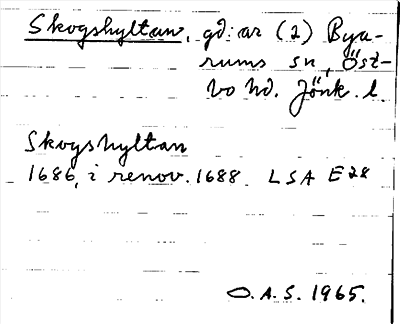 Skogshyltan, gd: ar (2) Bya-
rums sn, Öst-
bo hd. Jönk. l
Skogshyltan
1686, i renov. 1688 LSA E28
O.A.S. 1965.